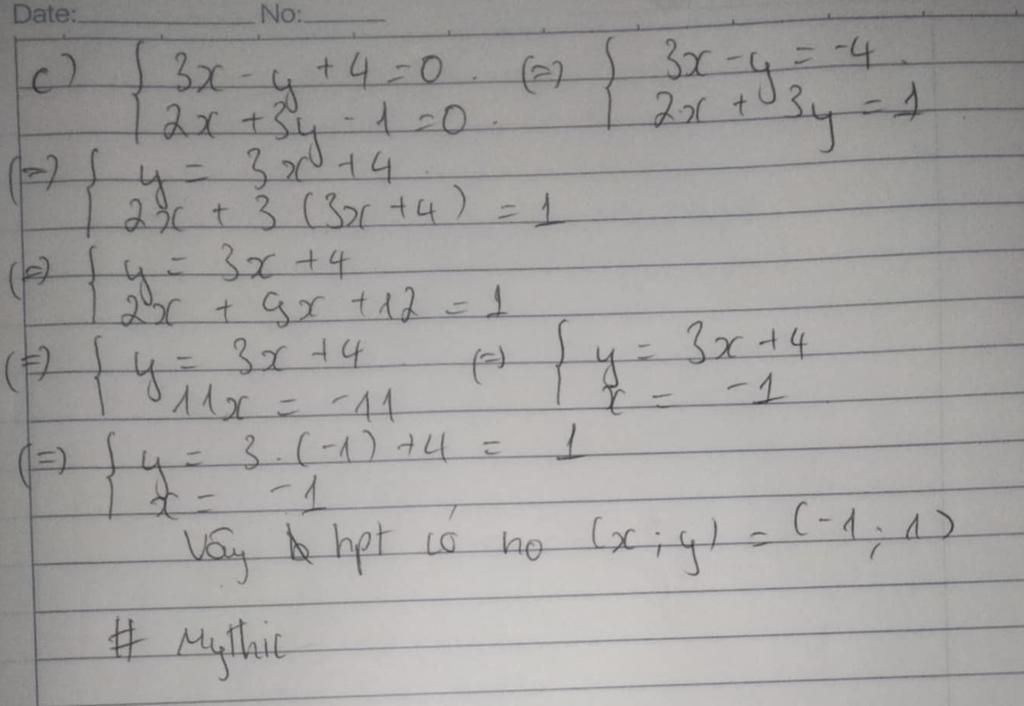 Date: No:
c) { 3x - y + 4 = 0. (=) { 3x - y = -4
2x + 3y - 1 = 0. 2x + 3y = 1
(=) { y = 3x + 4
2x + 3 (3x + 4) = 1
(=) { y = 3x + 4
2x + 9x + 12 = 1
(=) { y = 3x + 4 (=) { y = 3x + 4
11x = -11 x = -1
(=) { y = 3. (-1) + 4 = 1
x = -1
Vậy hpt có no (x ; y) = (-1 ; 1)
# Mythic